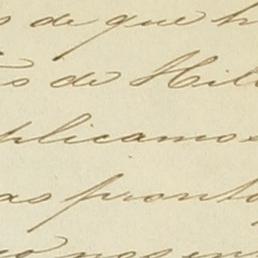 s de que h
s de Hil
plicamos
as pronto